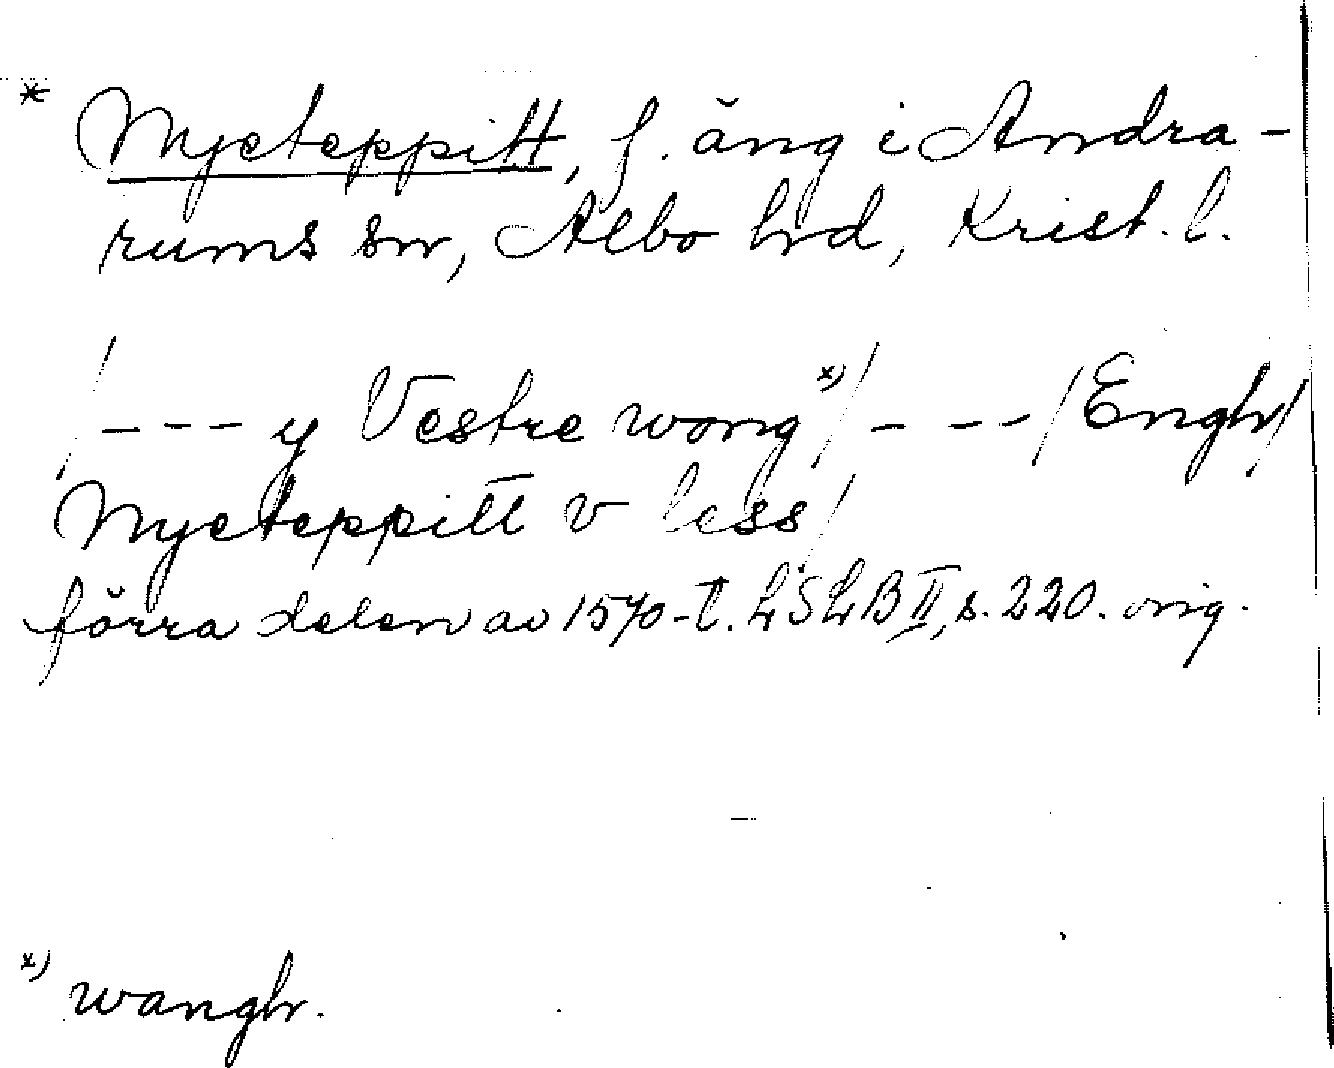 * Myeteppitt, f. äng i Andra-
rums sn, Albo hd, Krist. l.
/ - - - y Vestre wong x) / - - - / Engh /
Myeteppitt v less /
förra delen av 1570-t. LSLB II, s. 220. orig.
x) wangh.